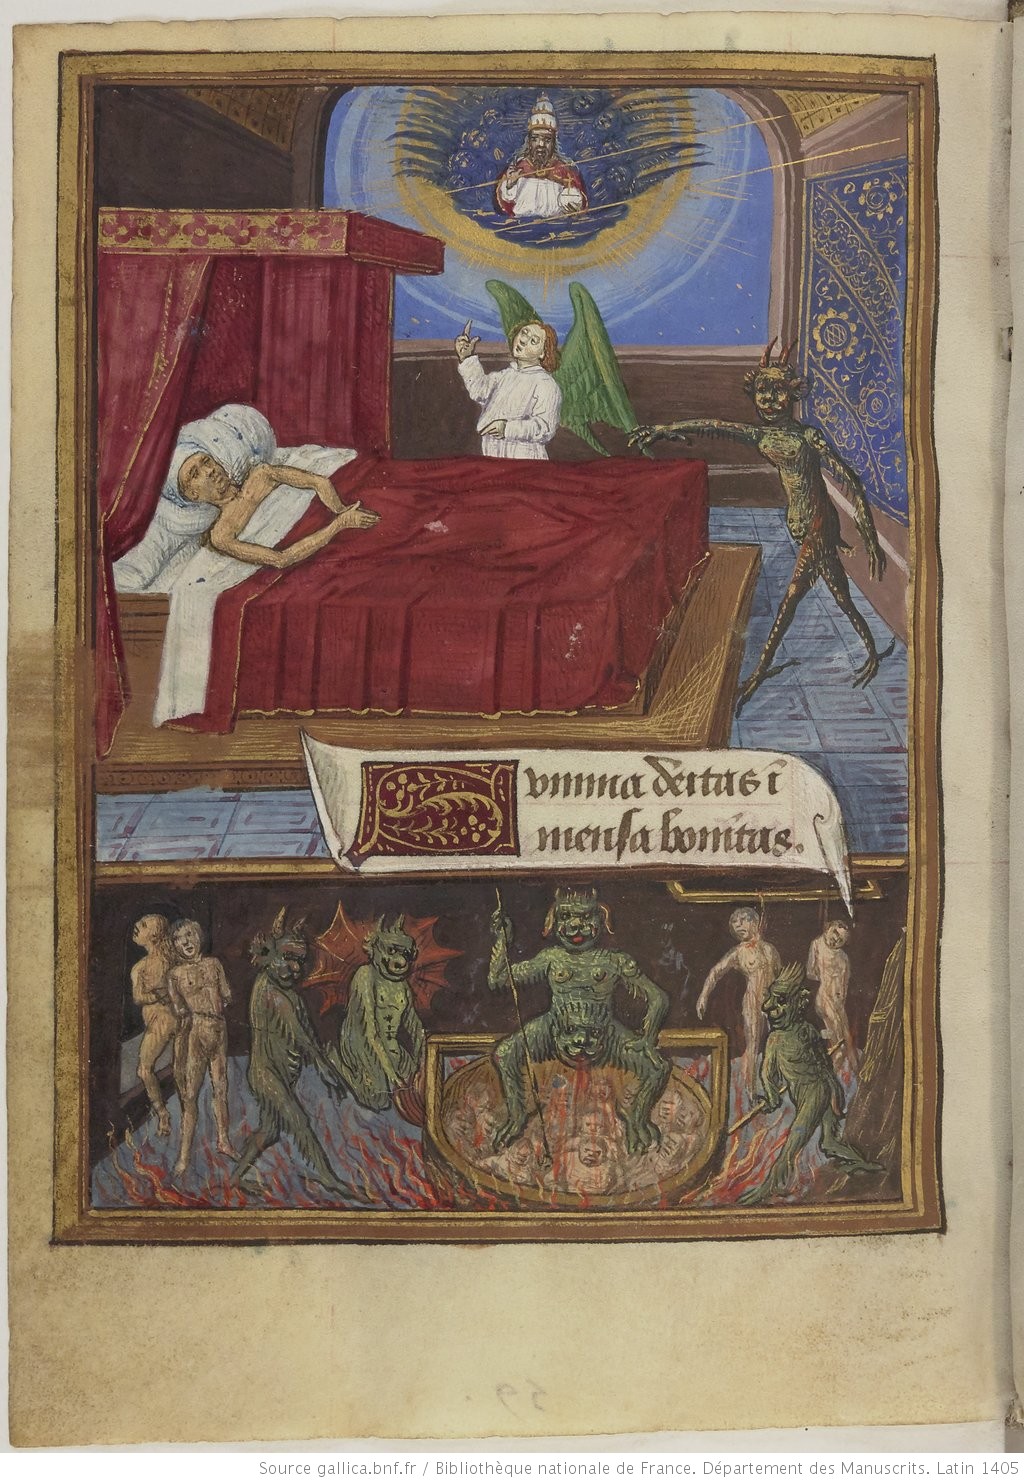 Svmma deitas ī
mensa bonitas.
Source gallica.bnf.fr / Bibliothèque nationale de France. Département des Manuscrits. Latin 1405